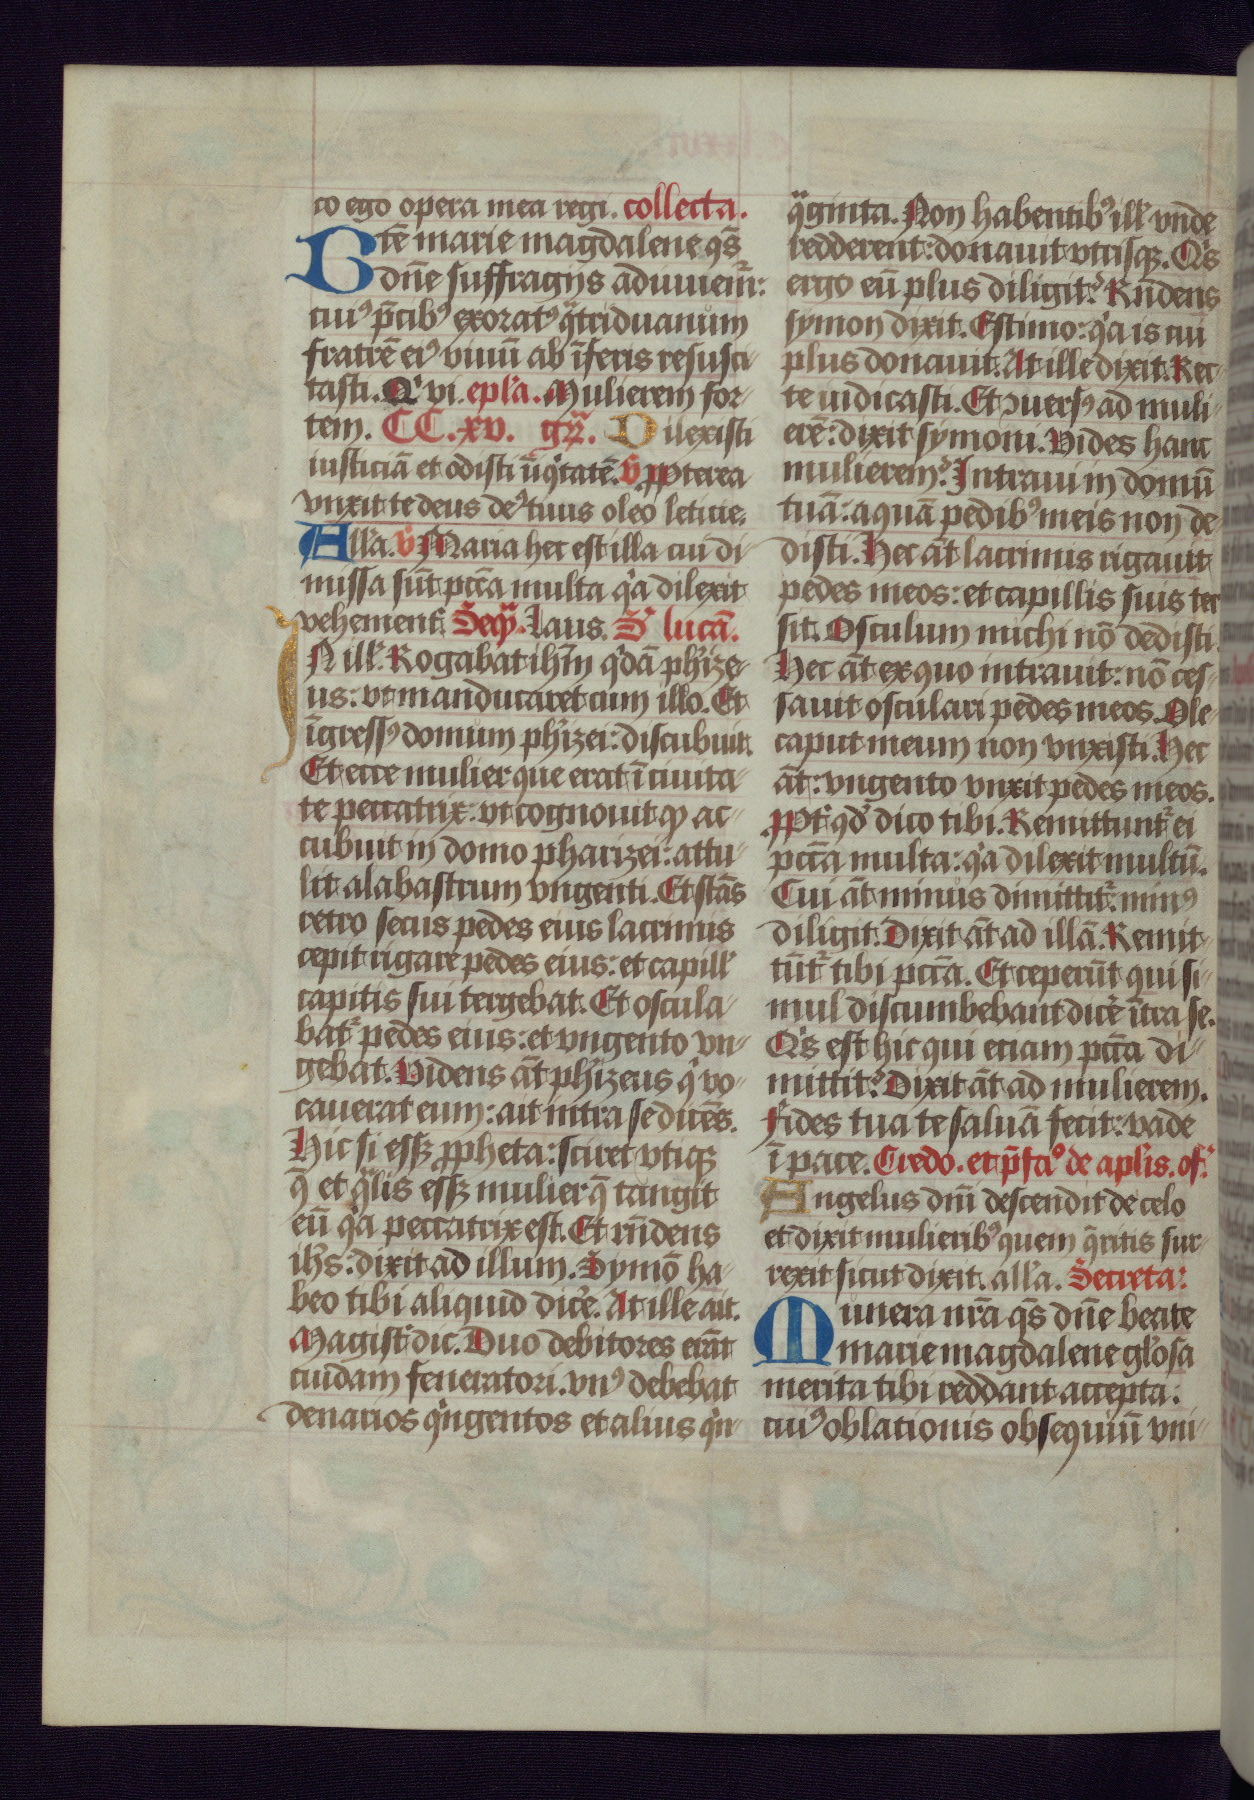 co ego opera mea regi. collecta.
Bte᷑ marie magdalene qs̄
dn̄e suffragijs adiuuem᷑:
cuiꝰ p̄cibꝰ exoratꝰ qͣtriduanum
fratrē eiꝰ viuū ab īferis resusci-
tasti. Qͥ vi. epl̄a. Mulierem for-
tem. CC.xv. gͣ. Dilexisti
iusticiā et odisti īiqͥtatē. v̄ ꝓpterea
vnxit te deus deꝰ tuus oleo leticie.
All̄a. v̄ Maria hec est illa cui di-
missa sūt pcc̄a multa qͥa dilexit
vehement᷑. Seqͣ. Laus. S' lucā.
IN ill'. Rogabat ih̄m qͥdā phi'ze-
us: vt manducaret cum illo. Et
īgressꝰ domum phi'zei: discubuit.
Et ecce mulier que erat ī ciuita-
te peccatrix: vt cognouit ꝙ ac-
cubuit in domo pharizei: attu-
lit alabastrum vngenti. Et stās
retro secus pedes eius lacrimis
cepit rigare pedes eius: et capill'
capitis sui tergebat. Et oscula-
bat᷑ pedes eius: et vngento vn-
gebat. Videns āt phi'zeus qͥ vo-
cauerat eum: ait intra se dicēs.
Hic si essꝫ ꝓpheta: sciret vtiqꝫ
q̄ et qͣlis essꝫ mulier q̄ tangit
eū qͥa peccatrix est. Et rn̄dens
ih̄s: dixit ad illum. Symō ha-
beo tibi aliquid dic̄e. At ille ait.
Magist᷑ dic. Duo debitores erāt
cuidam feneratori. vnꝰ debebat
denarios qͥngentos et alius qͥn-
qͣginta. Non habentibꝰ ill' vnde
redderent: donauit vtrisqꝫ. Qͥs
ergo eū plus diligit? Rn̄dens
symon dixit. Estimo: qͥa is cui
plus donauit. At ille dixit. Rec-
te iudicasti. Et ꝯuersꝰ ad muli-
erē: dixit symoni. Vides hanc
mulierem? Intraui in domū
tuā: aquā pedibꝰ meis non de-
disti. Hec āt lacrimis rigauit
pedes meos: et capillis suis ter-
sit. Osculum michi nō dedisti.
Hec āt ex quo intrauit: nō ces-
sauit osculari pedes meos. Ole-
caput meum non vnxisti. Hec
āt: vngento vnxit pedes meos.
ꝓpt᷑ qd' dico tibi. Remittunt᷑ ei
pcc̄a multa: qͥa dilexit multū.
Cui āt minus dimittit᷑: minꝰ
diligit. Dixit āt ad illā. Remit-
tūt᷑ tibi pcc̄a. Et ceperūt qui si-
mul discumbebant dic̄e ītra se.
Qͥs est hic qui etiam pcc̄a di-
mittit? Dixit āt ad mulierem.
Fides tua te saluā fecit: vade
ī pace. Credo. et p̄fcō de apl̄is. of.
Angelus dn̄i descendit de celo
et dixit mulieribꝰ quem q̄ritis sur-
rexit sicut dixit. all̄a. Secreta:
Munera nr̄a qs̄ dn̄e beate
marie magdalene gl'osa
merita tibi reddant accepta:
cuiꝰ oblationis obsequiū vni-